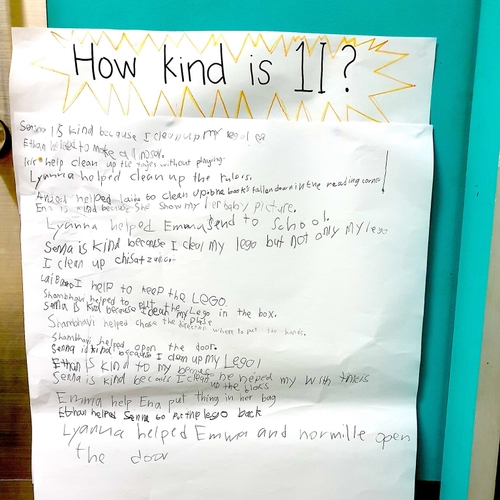 How kind is 1I?
Senna is kind because I clean up my
Ethan helped to make a
help clean up the without playing.
Lyanna helped clean up the rulers.
helped to clean up the book's fallen down in the reading corner
Ena is kind because She show my her baby picture.
Lyanna helped Emma send to school.
Senna is kind because I cleal my lego but not only my lego
I clean up
I help to keep the LEGO.
Shambhavi helped to put the
Senna is kind because I clean my Lego in the box.
Shambhavi helped chose the direction where to put the hands.
Shambhavi helped opon the door.
Senna is kind because I clean up my Lego!
Ethan is kind to my because
Senna is kind because I clean up the blocks
he heped my with
Emma help Ena put thing in her bag
Ethan helped Senna to put the lego back
Lyanna helped Emma and normille open
the door